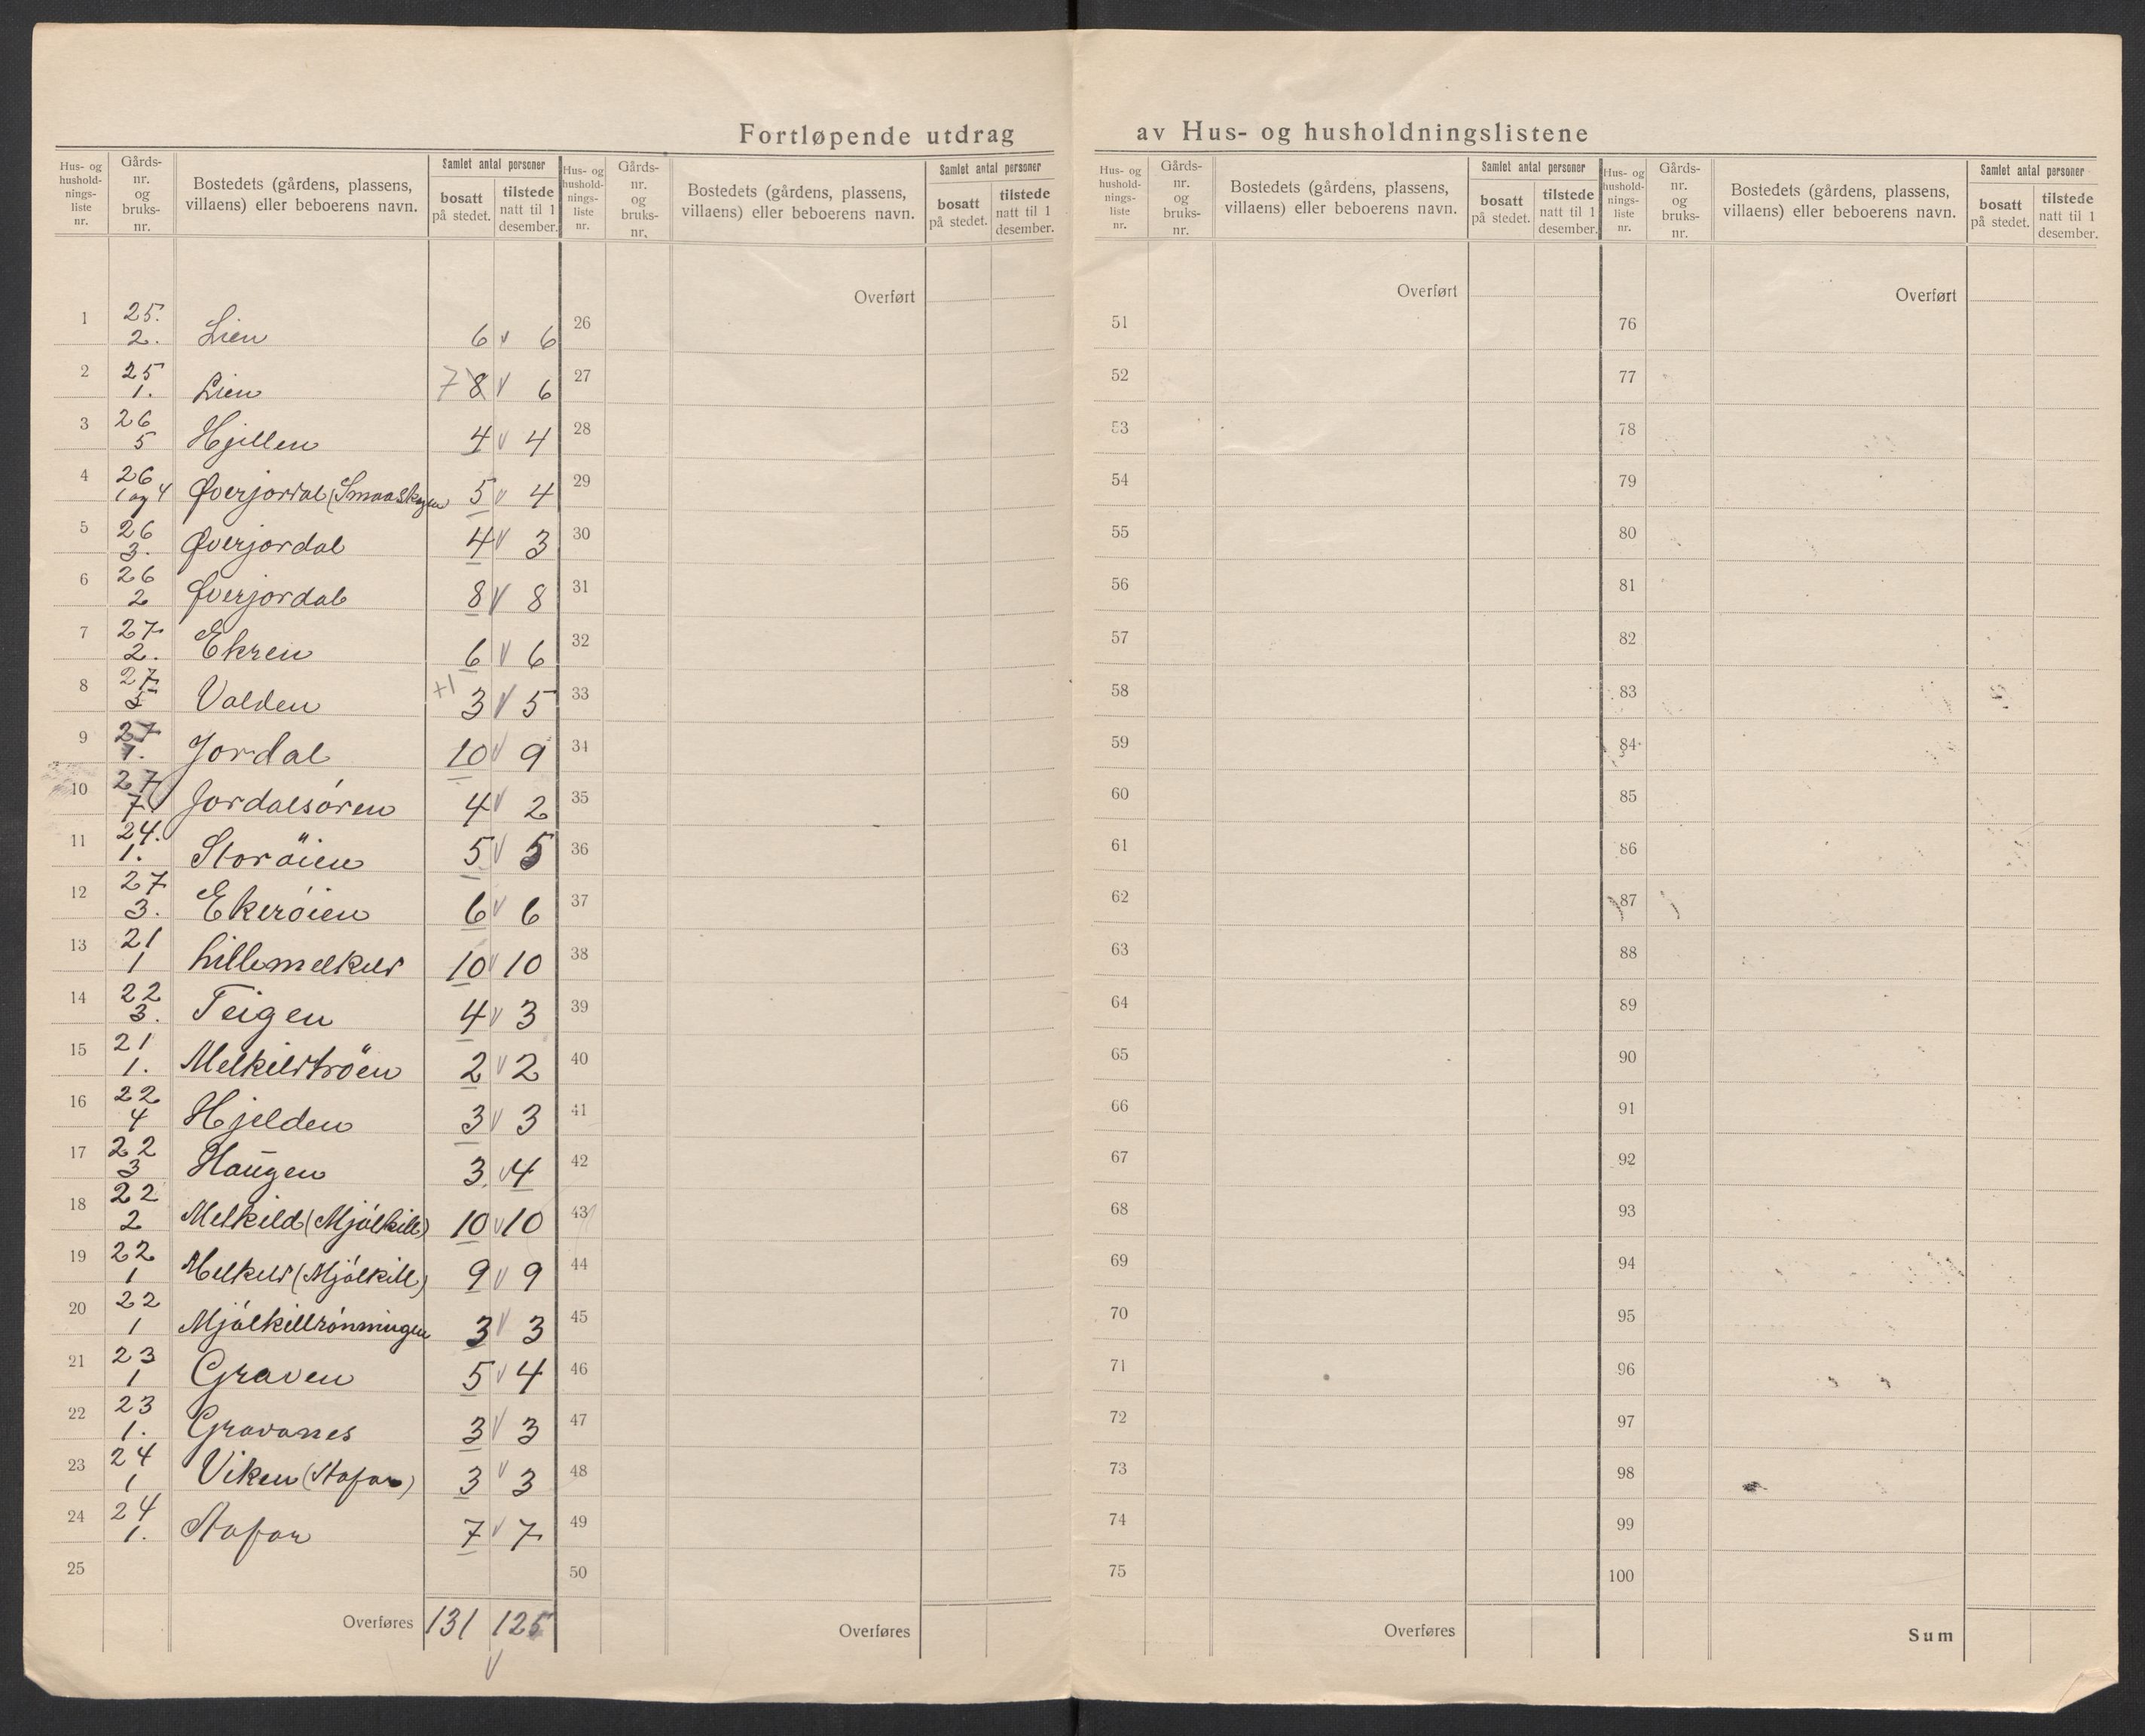 Fortløpende utdrag av Hus- og husholdningslistene
Hus- og hushold-nings-liste nr. Gårds-nr. og bruks-nr. Bostedets (gårdens, plassens, villaens) eller beboerens navn. Samlet antal personer bosatt på stedet. tilstede natt til 1 desember.
Hus- og hushold-nings-liste nr. Gårds-nr. og bruks-nr. Bostedets (gårdens, plassens, villaens) eller beboerens navn. Samlet antal personer bosatt på stedet. tilstede natt til 1 desember.
Hus- og hushold-nings-liste nr. Gårds-nr. og bruks-nr. Bostedets (gårdens, plassens, villaens) eller beboerens navn. Samlet antal personer bosatt på stedet. tilstede natt til 1 desember.
Hus- og hushold-nings-liste nr. Gårds-nr. og bruks-nr. Bostedets (gårdens, plassens, villaens) eller beboerens navn. Samlet antal personer bosatt på stedet. tilstede natt til 1 desember.
Overført Overført Overført
1 25. 2. Lien 6 v 6 26 51 76
2 25 1. Lien 7 8 v 6 27 52 77
3 26 5 Hjellen 4 v 4 28 53 78
4 26 1 og 4 Øverjordal (Smaaskogen 5 v 4 29 54 79
5 26 3. Øverjordal 4 v 3 30 55 80
6 26 2 Øverjordal 8 v 8 31 56 81
7 27 2. Ekren 6 v 6 32 57 82
8 27 5 Volden +1 3 v 5 33 58 83
9 27 1. Jordal 10 v 9 34 59 84
10 27 7. Jordalsøren 4 v 2 35 60 85
11 24. 1. Storöien 5 v 5 36 61 86
12 27 3. Ekeróien 6 v 6 37 62 87
13 21 1 Lillemelkild 10 v 10 38 63 88
14 22 3. Teigen 4 v 3 39 64 89
15 21 1. Melkildtröen 2 v 2 40 65 90
16 22 4 Hjelden 3 v 3 41 66 91
17 22 3 Haugen 3. v 4 42 67 92
18 22 2 Melkild (Mjólkill) 10 v 10 43 68 93
19 22 1 Melkild (Mjólkill) 9 v 9 44 69 94
20 22 1 Mjólkillrónningen 3 v 3 45 70 95
21 23 1 Graven 5 v 4 46 71 96
22 23 1. Gravanes 3 v 3 47 72 97
23 24 1 Viken (Stafar) 3 v 3 48 73 98
24 24 1. Stafar 7 v 7 49 74 99
25 50 75 100
Overføres 131 125 Overføres Overføres Sum
v